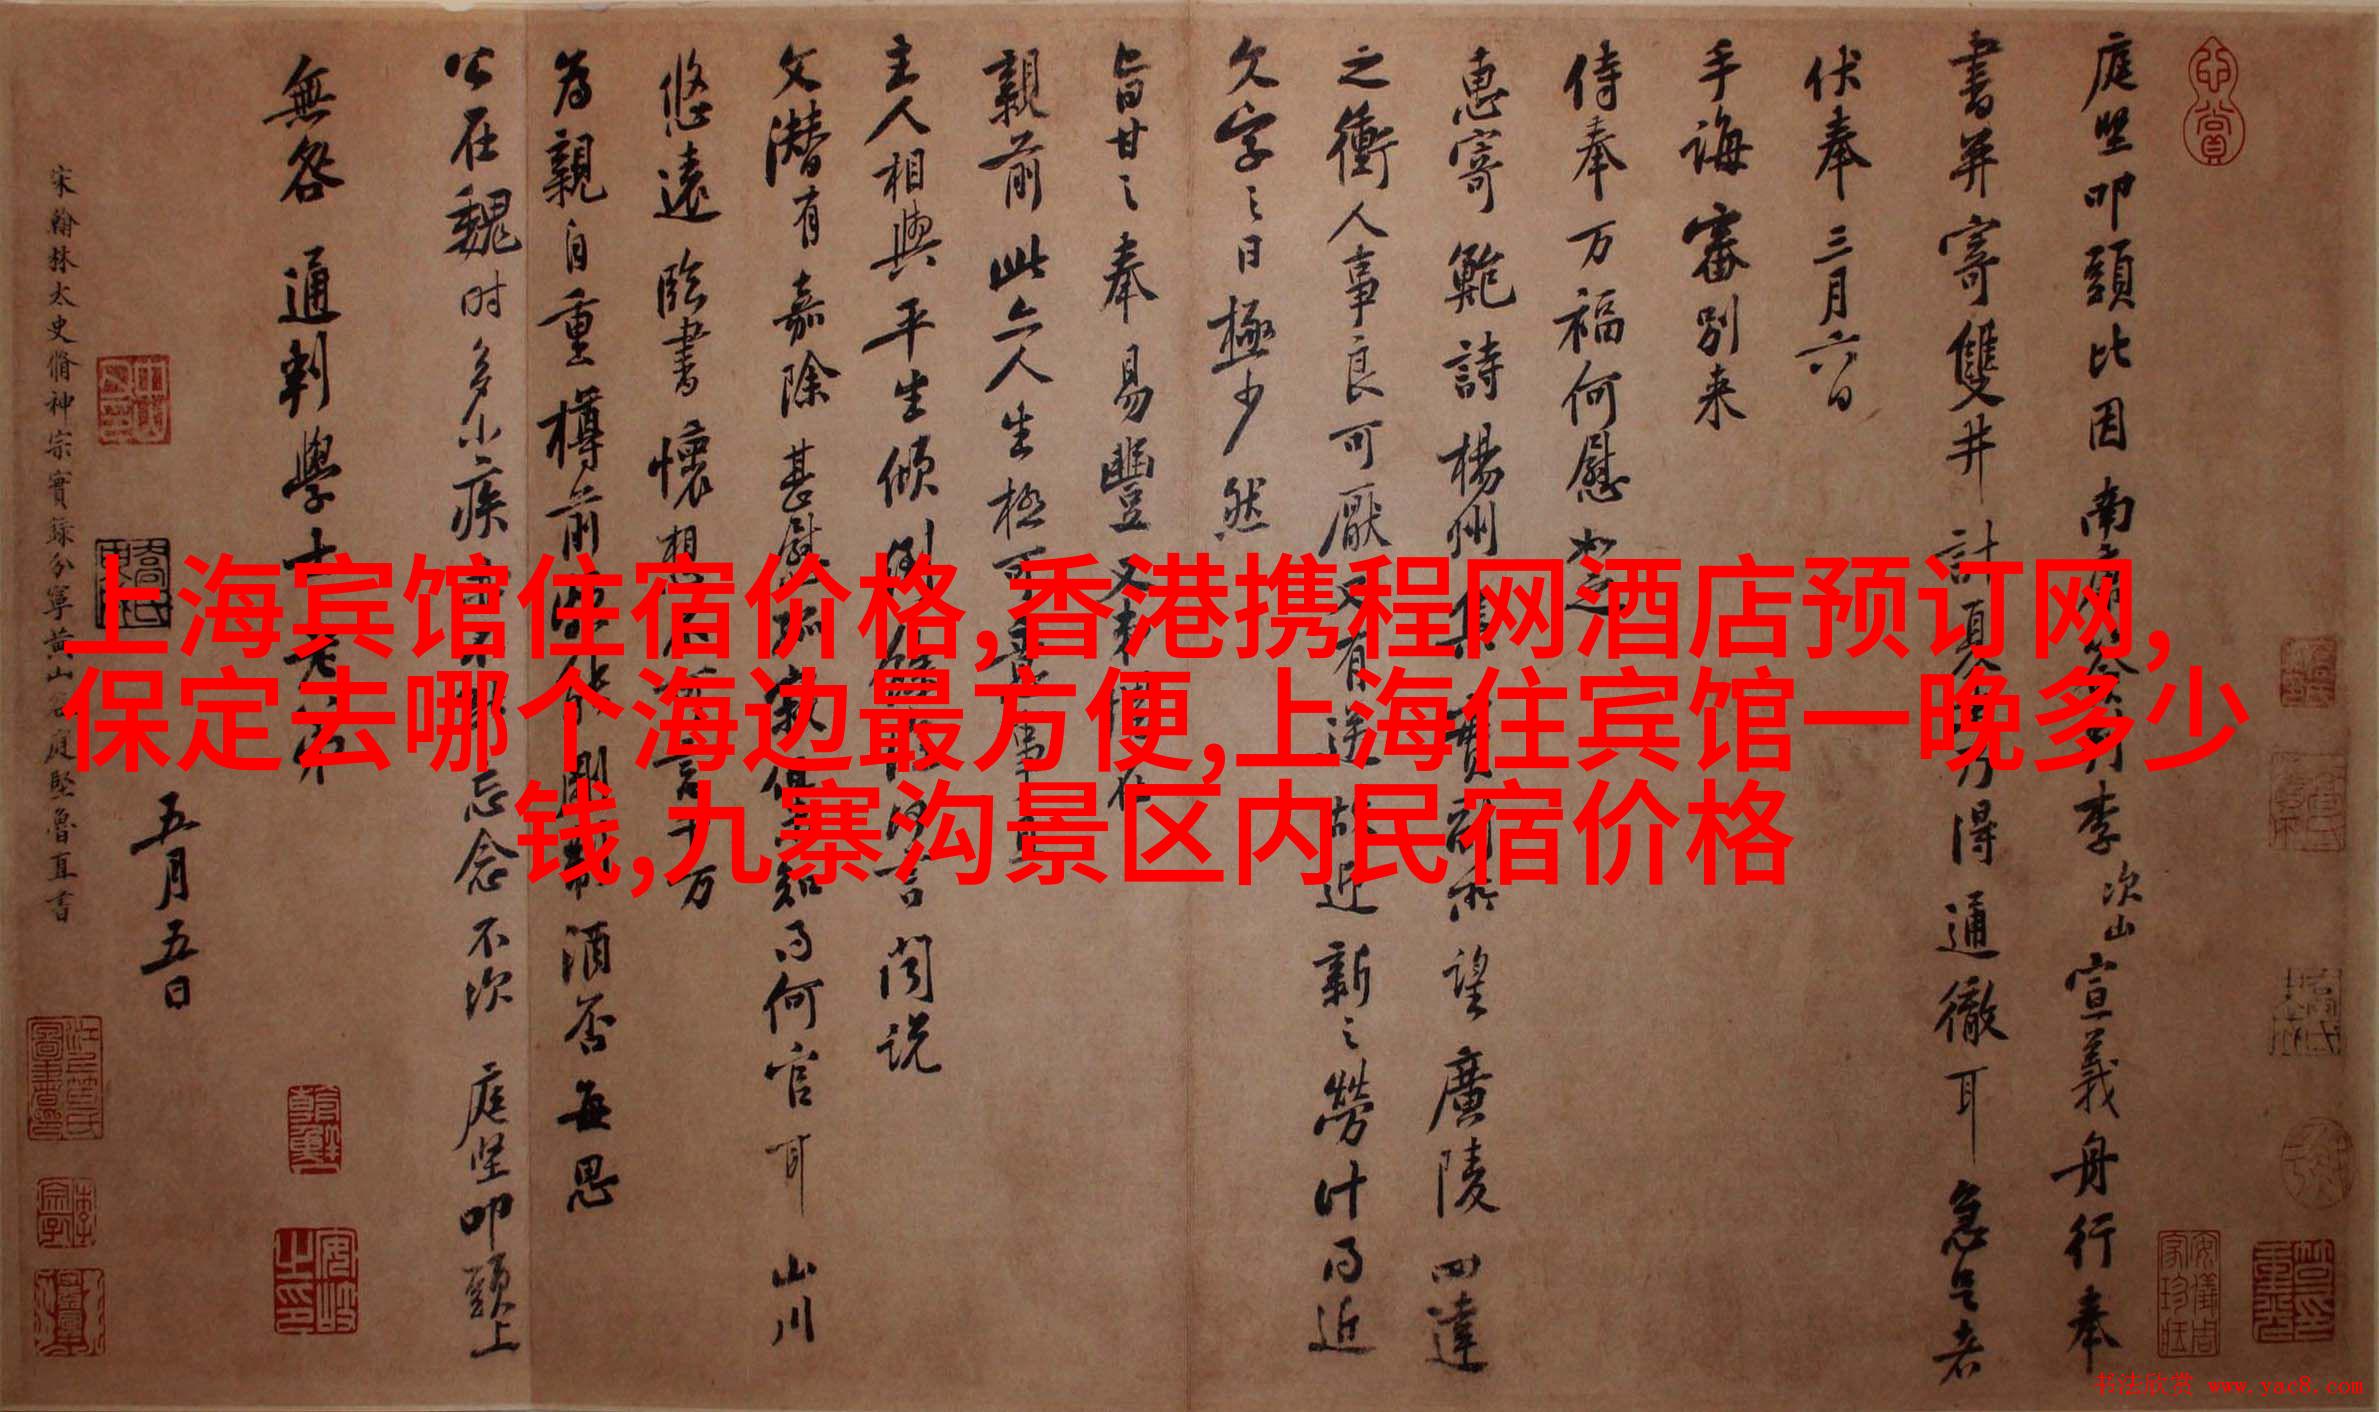 上海宾馆住宿价格,香港携程网酒店预订网,
保定去哪个海边最方便,上海住宾馆一晚多少
钱,九寨沟景区内民宿价格
庭坚叩頭比因南李次山宣義舟行奉
書并寄雙井計夏乃得通徹耳急足者
伏奉三月六日
手誨審別来
侍奉万福何慰如之
惠寄鲍詩楊州集實副所望廣陵四達
之衝人事良可厭又有送故迎新之勞計乃近
欠字之日極少然
旨甘之奉易豐又
親前此亦人生極可喜事
主人相與平生傾倒閒说
文潜有嘉除甚慰孤寂但知乃何官耳山川
悠遠臨書懷想不可言千万
为親自重樽前能制酒否無思
公在魏时多小疾忘念不次 庭坚叩頭上
無咎通判學士老弟
五月五日
宋翰林太史脩神宗實録分寧黃山谷庭堅魯直書
书法欣赏 www.yac8.com